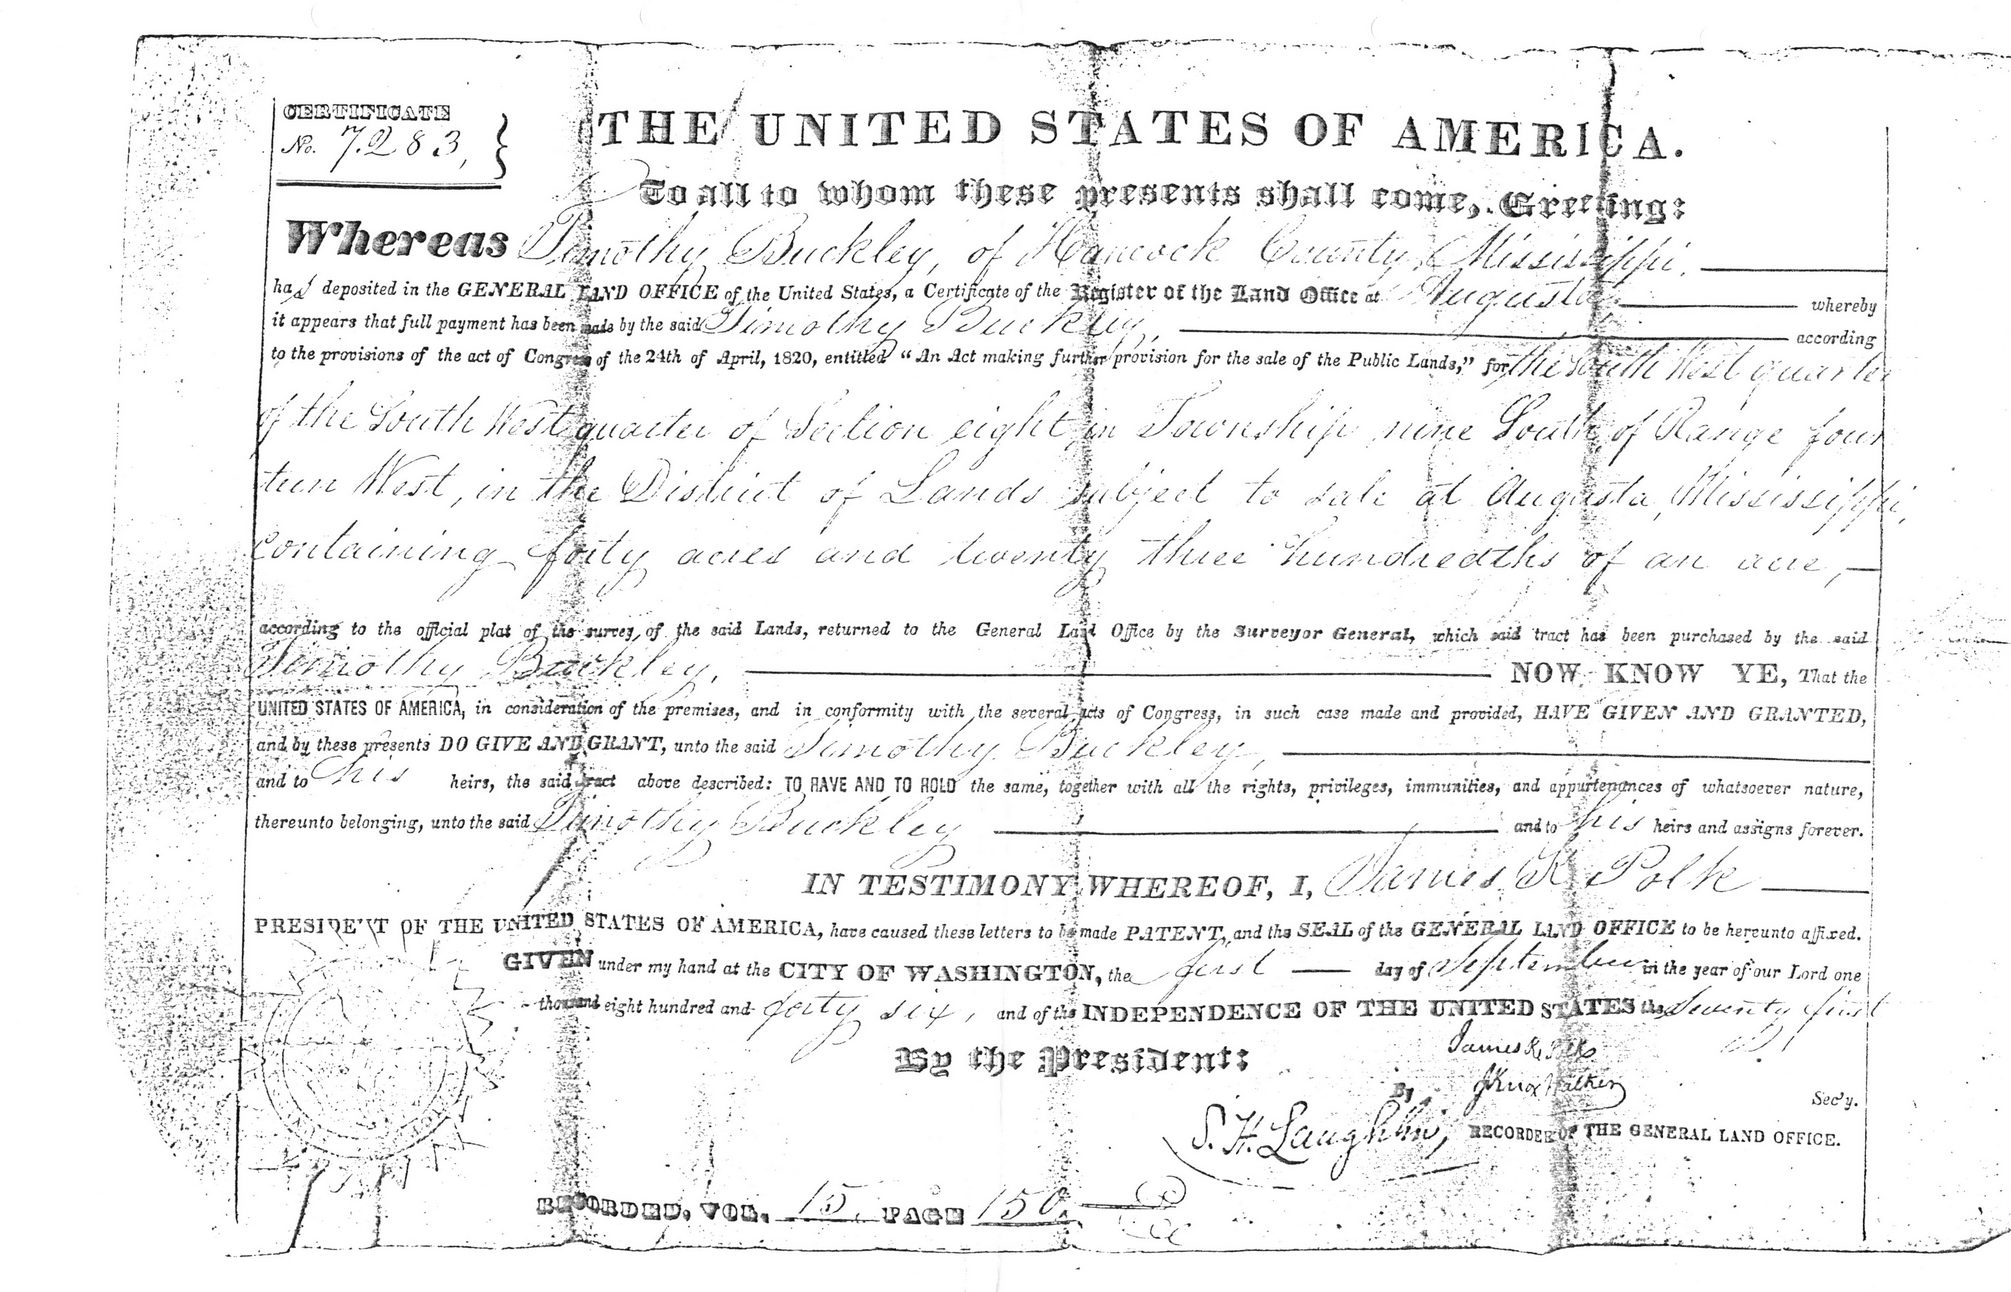 CERTIFICATE
No. 7283,
THE UNITED STATES OF AMERICA.
To all to whom these presents shall come, Greeting:
Whereas Timothy Buckley, of Hancock County, Mississippi.
has deposited in the GENERAL LAND OFFICE of the United States, a Certificate of the Register of the Land Office at Augusta, whereby
it appears that full payment has been made by the said Timothy Buckley, according
to the provisions of the act of Congress of the 24th of April, 1820, entitled "An Act making further provision for the sale of the Public Lands," for the South West quarter
of the South West quarter of Section eight in Township nine South of Range four
teen West, in the District of Lands subject to sale at Augusta, Mississippi,
containing forty acres and twenty three hundredths of an acre,
according to the official plat of the survey of the said Lands, returned to the General Land Office by the Surveyor General, which said tract has been purchased by the said
Timothy Buckley, NOW KNOW YE, That the
UNITED STATES OF AMERICA, in consideration of the premises, and in conformity with the several acts of Congress, in such case made and provided, HAVE GIVEN AND GRANTED,
and by these presents DO GIVE AND GRANT, unto the said Timothy Buckley,
and to his heirs, the said tract above described: TO HAVE AND TO HOLD the same, together with all the rights, privileges, immunities, and appurtenances of whatsoever nature,
thereunto belonging, unto the said Timothy Buckley and to his heirs and assigns forever.
IN TESTIMONY WHEREOF, I, James K. Polk
PRESIDENT OF THE UNITED STATES OF AMERICA, have caused these letters to be made PATENT, and the SEAL of the GENERAL LAND OFFICE to be hereunto affixed.
GIVEN under my hand at the CITY OF WASHINGTON, the first day of September in the year of our Lord one
thousand eight hundred and forty six, and of the INDEPENDENCE OF THE UNITED STATES the Seventy first
By the President: James K. Polk
By J Knox Walker Sec'y.
S. H. Laughlin, RECORDER OF THE GENERAL LAND OFFICE.
RECORDED, VOL. 15, PAGE 150.